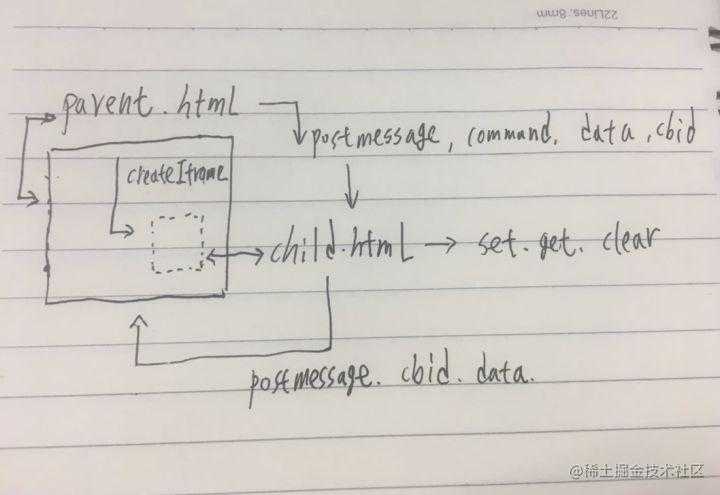 22Lines. 8mm
parent.html
postmessage, command, data, cbid
createIframe
child.html → set.get.clear
postmessage. cbid. data.
@稀土掘金技术社区